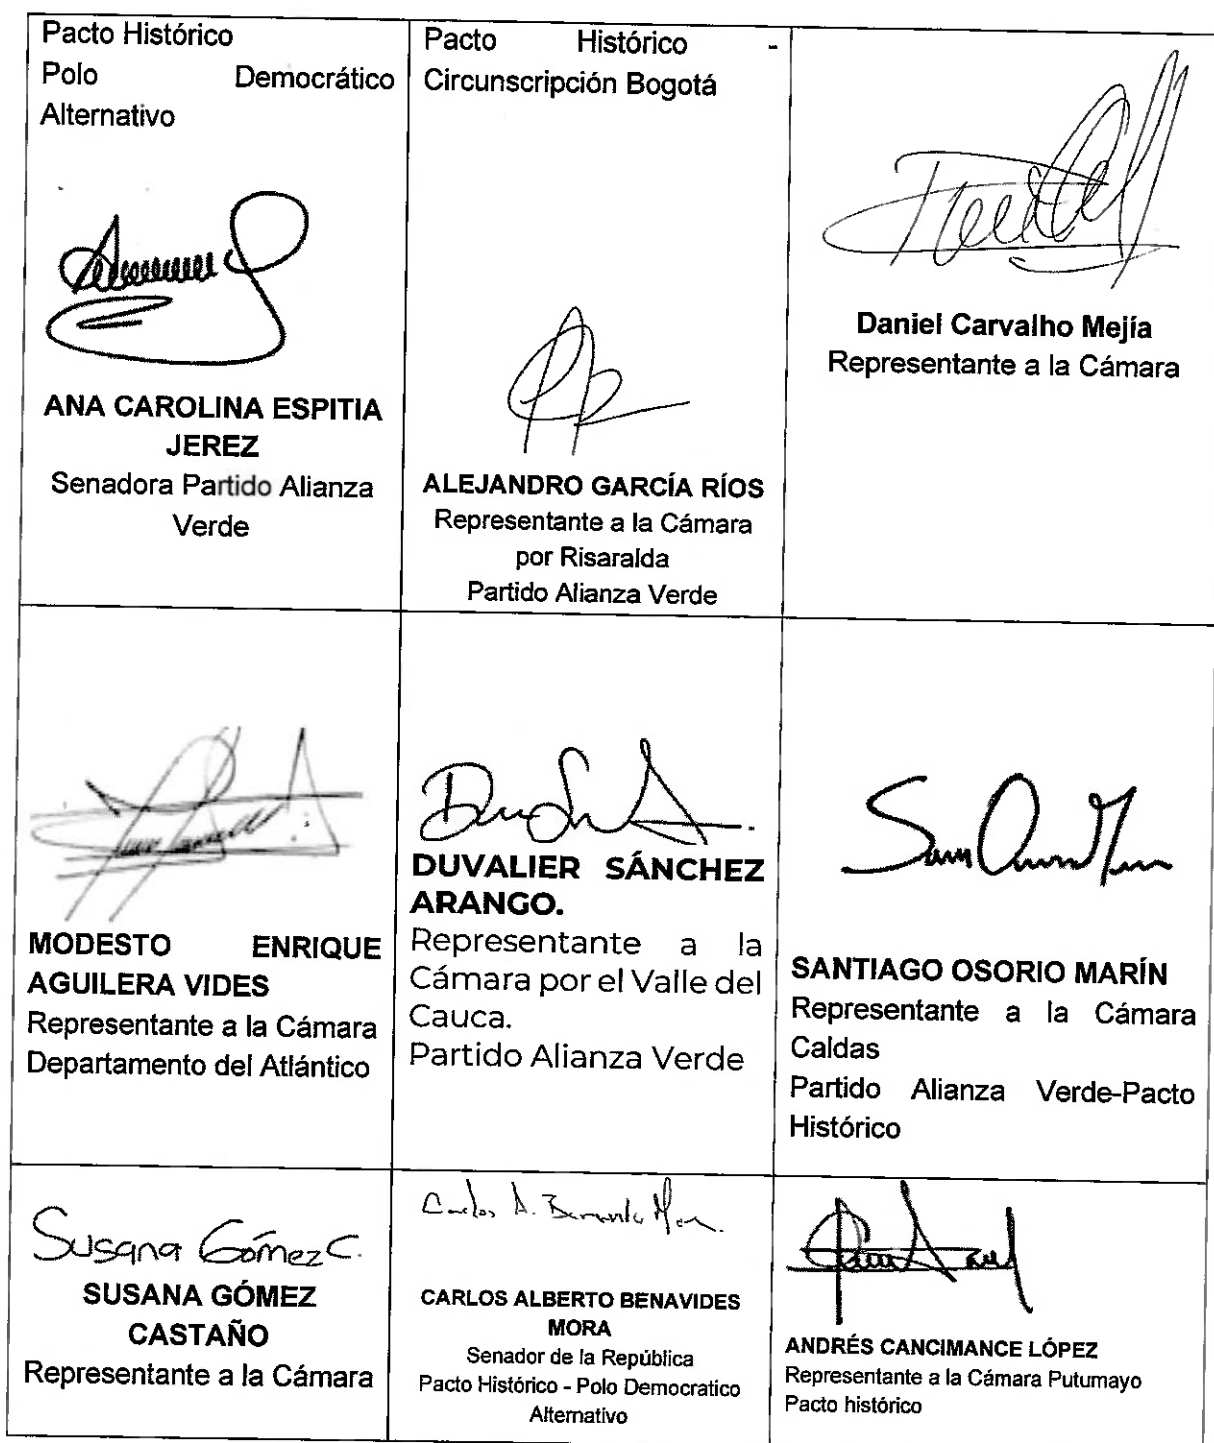 Pacto Histórico
Polo Democrático
Alternativo
ANA CAROLINA ESPITIA
JEREZ
Senadora Partido Alianza
Verde
Pacto Histórico -
Circunscripción Bogotá
ALEJANDRO GARCÍA RÍOS
Representante a la Cámara
por Risaralda
Partido Alianza Verde
Daniel Carvalho Mejía
Representante a la Cámara
MODESTO ENRIQUE
AGUILERA VIDES
Representante a la Cámara
Departamento del Atlántico
DUVALIER SÁNCHEZ
ARANGO.
Representante a la
Cámara por el Valle del
Cauca.
Partido Alianza Verde
SANTIAGO OSORIO MARÍN
Representante a la Cámara
Caldas
Partido Alianza Verde-Pacto
Histórico
Susana Gómez C.
SUSANA GÓMEZ
CASTAÑO
Representante a la Cámara
Carlos A.
CARLOS ALBERTO BENAVIDES
MORA
Senador de la República
Pacto Histórico - Polo Democratico
Alternativo
ANDRÉS CANCIMANCE LÓPEZ
Representante a la Cámara Putumayo
Pacto histórico